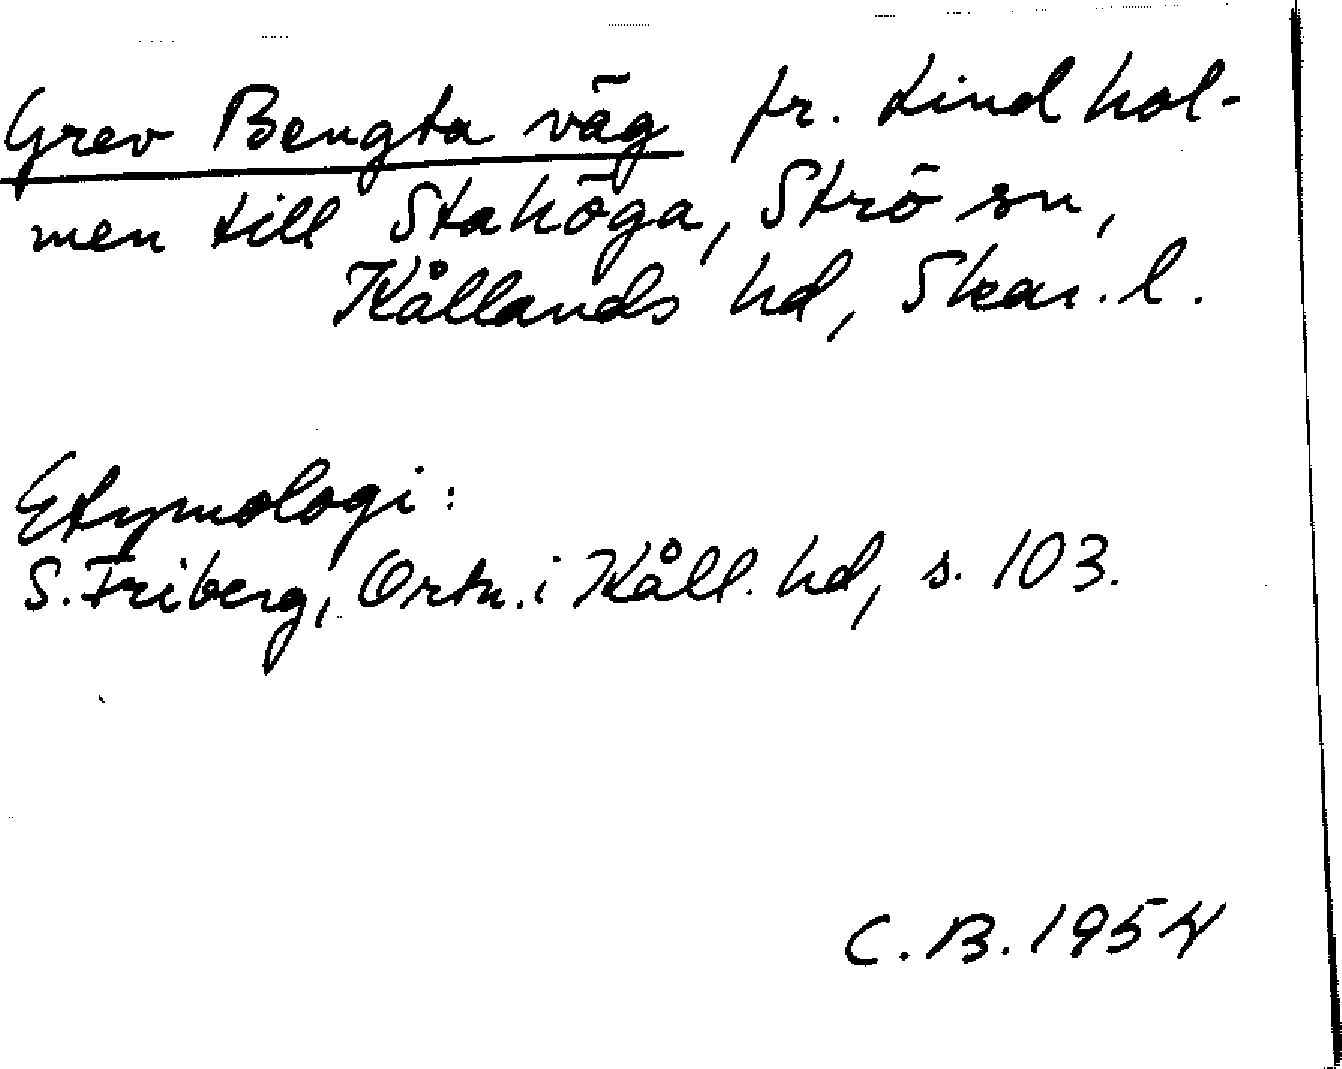 Grev Bengta väg fr. Lindhol-
men till Stahöga, Strö sn,
Kållands hd, Skar. l.
Etymologi:
S. Friberg, Ortn. i Kåll. hd, s. 103.
C. B. 1954